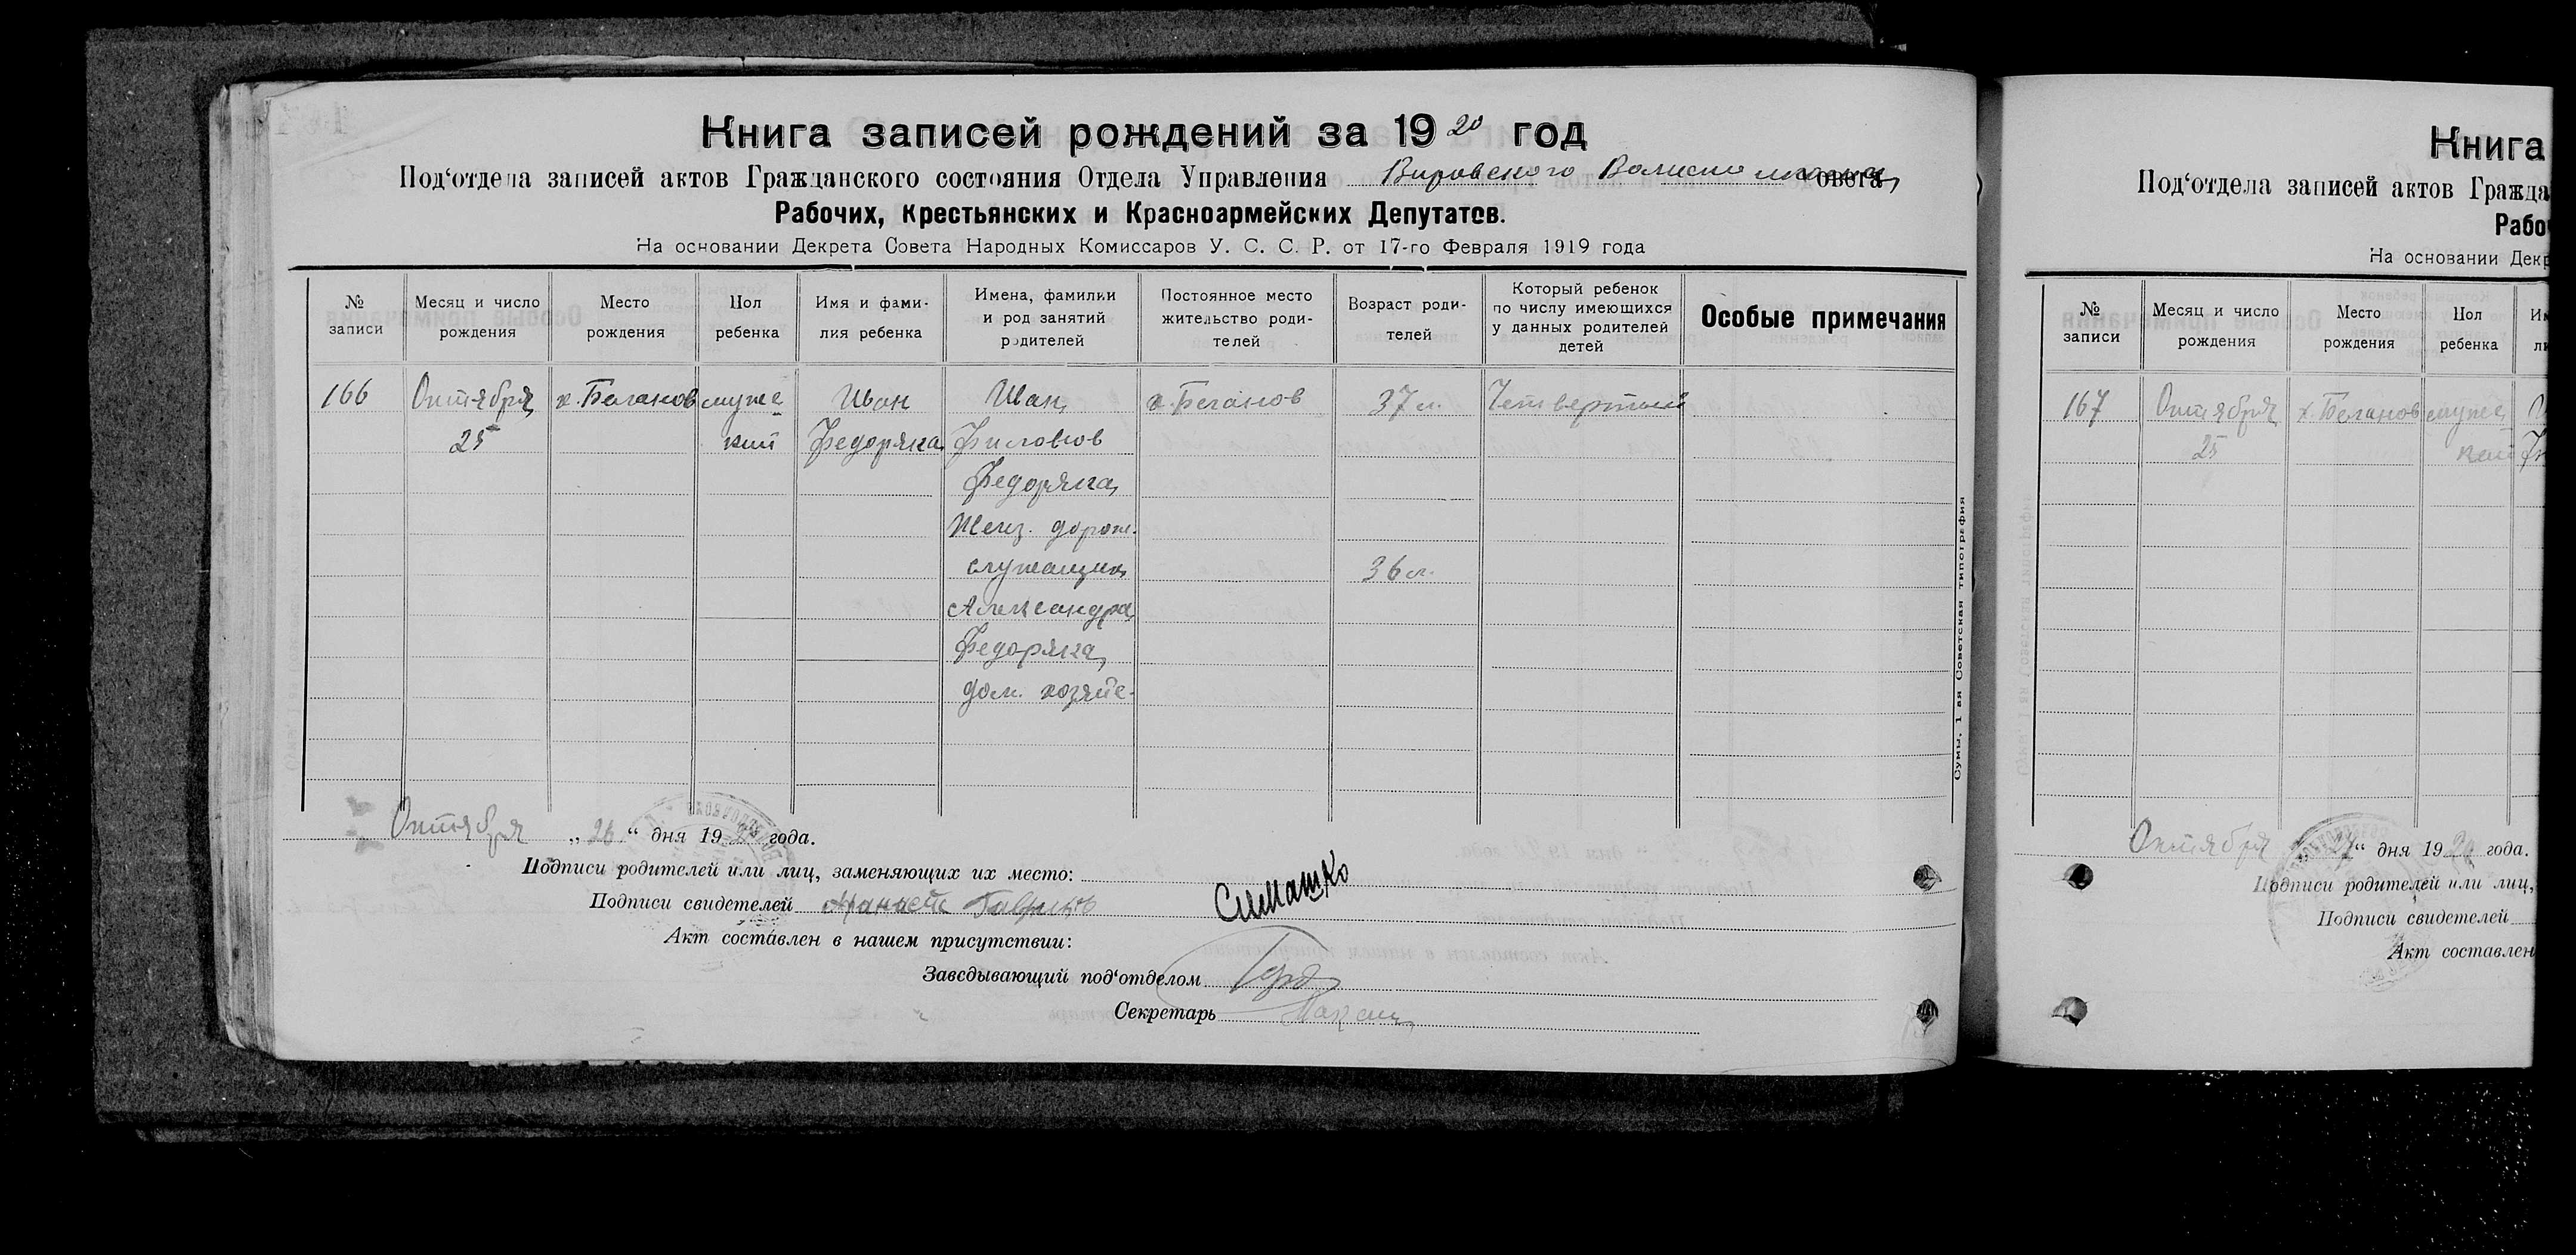 Книга записей рождений за 1920 год
Под‘отдела записей актов Гражданского состояния Отдела Управления Вировского овета
Рабочих, Крестьянских и Красноармейских Депутатов.
На основании Декрета Совета Народных Комиссаров У. С. С. Р. от 17-го Февраля 1919 года
№ записи
Месяц и число рождения
Место рождения
Пол ребенка
Имя и фами-
лия ребенка
Имена, фамилии
и род занятий
родителей
Постоянное место
жительство роди-
телей
Возраст роди-
телей
Который ребенок
по числу имеющихся
у данных родителей
детей
Особые примечания
166
Октября
25
х. Беганов
мужс
кий
Иван
Федоряка
Иван
Федоряка
Желз. дорож.
служащий
Александра
Федоряка
дом. хозяйс.
х. Беганов
37 л.
36 л.
Четвертый
Сумы, 1-ая Советская типография
Октября „26“ дня 1920 года.
Подписи родителей или лиц, заменяющих их место:
Подписи свидетелей
Симашко
Акт составлен в нашем присутствии:
Заведывающий под‘отделом
Секретарь
Книга
Под‘отдела записей актов Гражда
Рабо
На основании Декр
№ записи
Месяц и число рождения
Место рождения
Пол ребенка
167
Октября
25
х. Беганов
мужс
кий
Октября 27“ дня 1920 года.
Подписи родителей или лиц,
Подписи свидетелей
Акт составлен